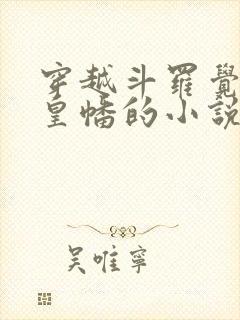 穿越斗羅覺
皇幡的小說
吴唯寧